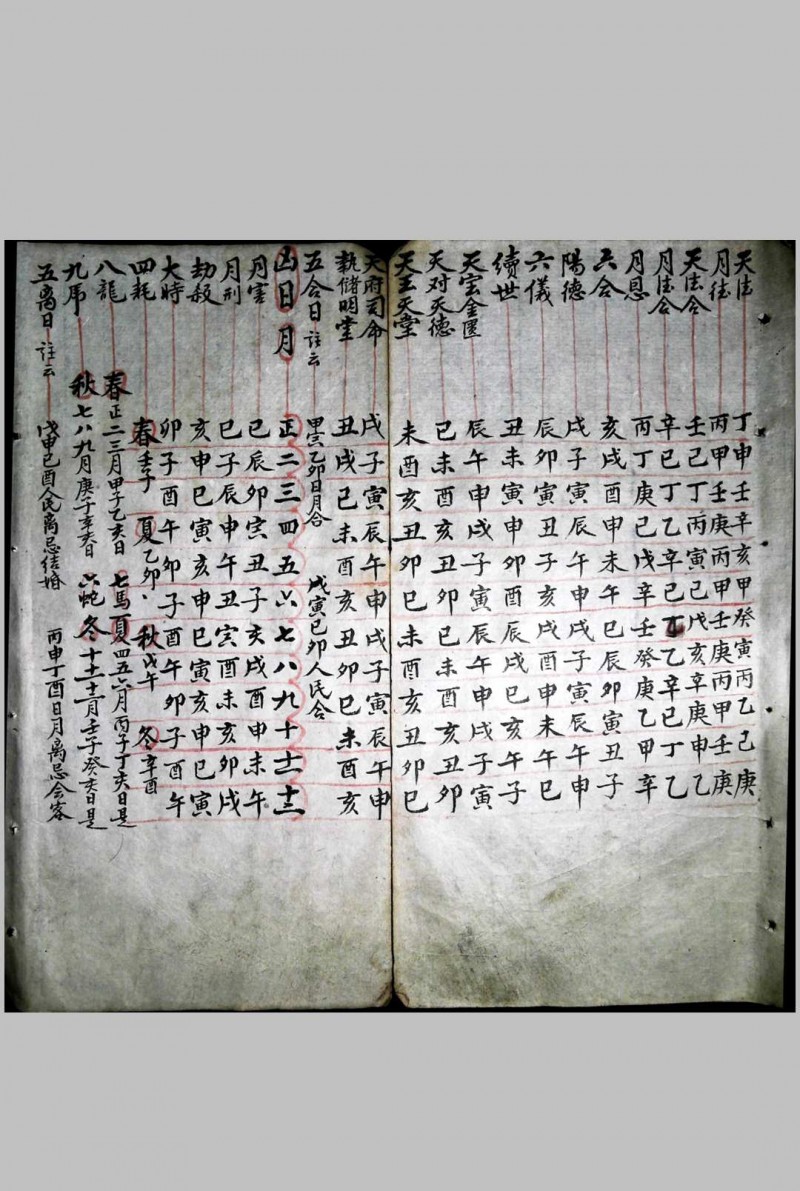 天德 丁申壬辛亥甲癸寅丙乙己庚
月德 丙甲壬庚丙甲壬庚丙甲壬庚
天德合 壬己丁丙寅己戊亥辛庚申乙
月德合 辛己丁乙辛己丁乙辛己丁乙
月恩 丙丁庚己戊辛壬癸庚乙甲辛
六合 亥戌酉申未午巳辰卯寅丑子
陽德 戌子寅辰午申戌子寅辰午申
六儀 辰卯寅丑子亥戌酉申未午巳
續世 丑未寅申卯酉辰戌巳亥午子
天宝金匮 辰午申戌子寅辰午申戌子寅
天对天德 巳未酉亥丑卯巳未酉亥丑卯
天玉天堂 未酉亥丑卯巳未酉亥丑卯巳
天府司命 戌子寅辰午申戌子寅辰午申
執儲明堂 丑戌巳未酉亥丑卯巳未酉亥
五合日 註云 甲寅乙卯日月合 戊寅己卯人民合
凶日月 正二三四五六七八九十十一十二
月害 巳辰卯寅丑子亥戌酉申未午
月刑 巳子辰申午丑寅酉未亥卯戌
劫殺 亥申巳寅亥申巳寅亥申巳寅
大時 卯子酉午卯子酉午卯子酉午
四耗 春壬子 夏乙卯、秋戊午 冬辛酉
八龍 春正二三月甲子乙亥日 七馬夏四五六月丙子丁亥日是
九虎 秋七八九月庚子辛亥日 六蛇冬十十一十二月壬子癸亥日是
五离日 註云 戊申己酉人民离忌结婚 丙申丁酉日月离忌会客